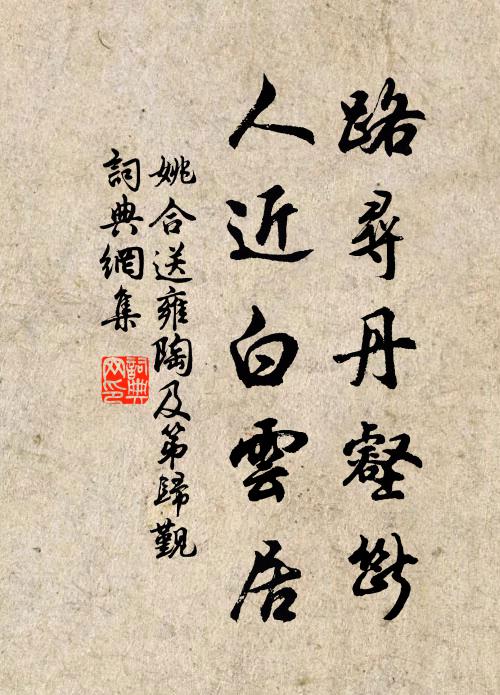 路尋丹壑斷
人近白雲居
姚合送雍陶及第歸覲
詞典網集
詞典
网印